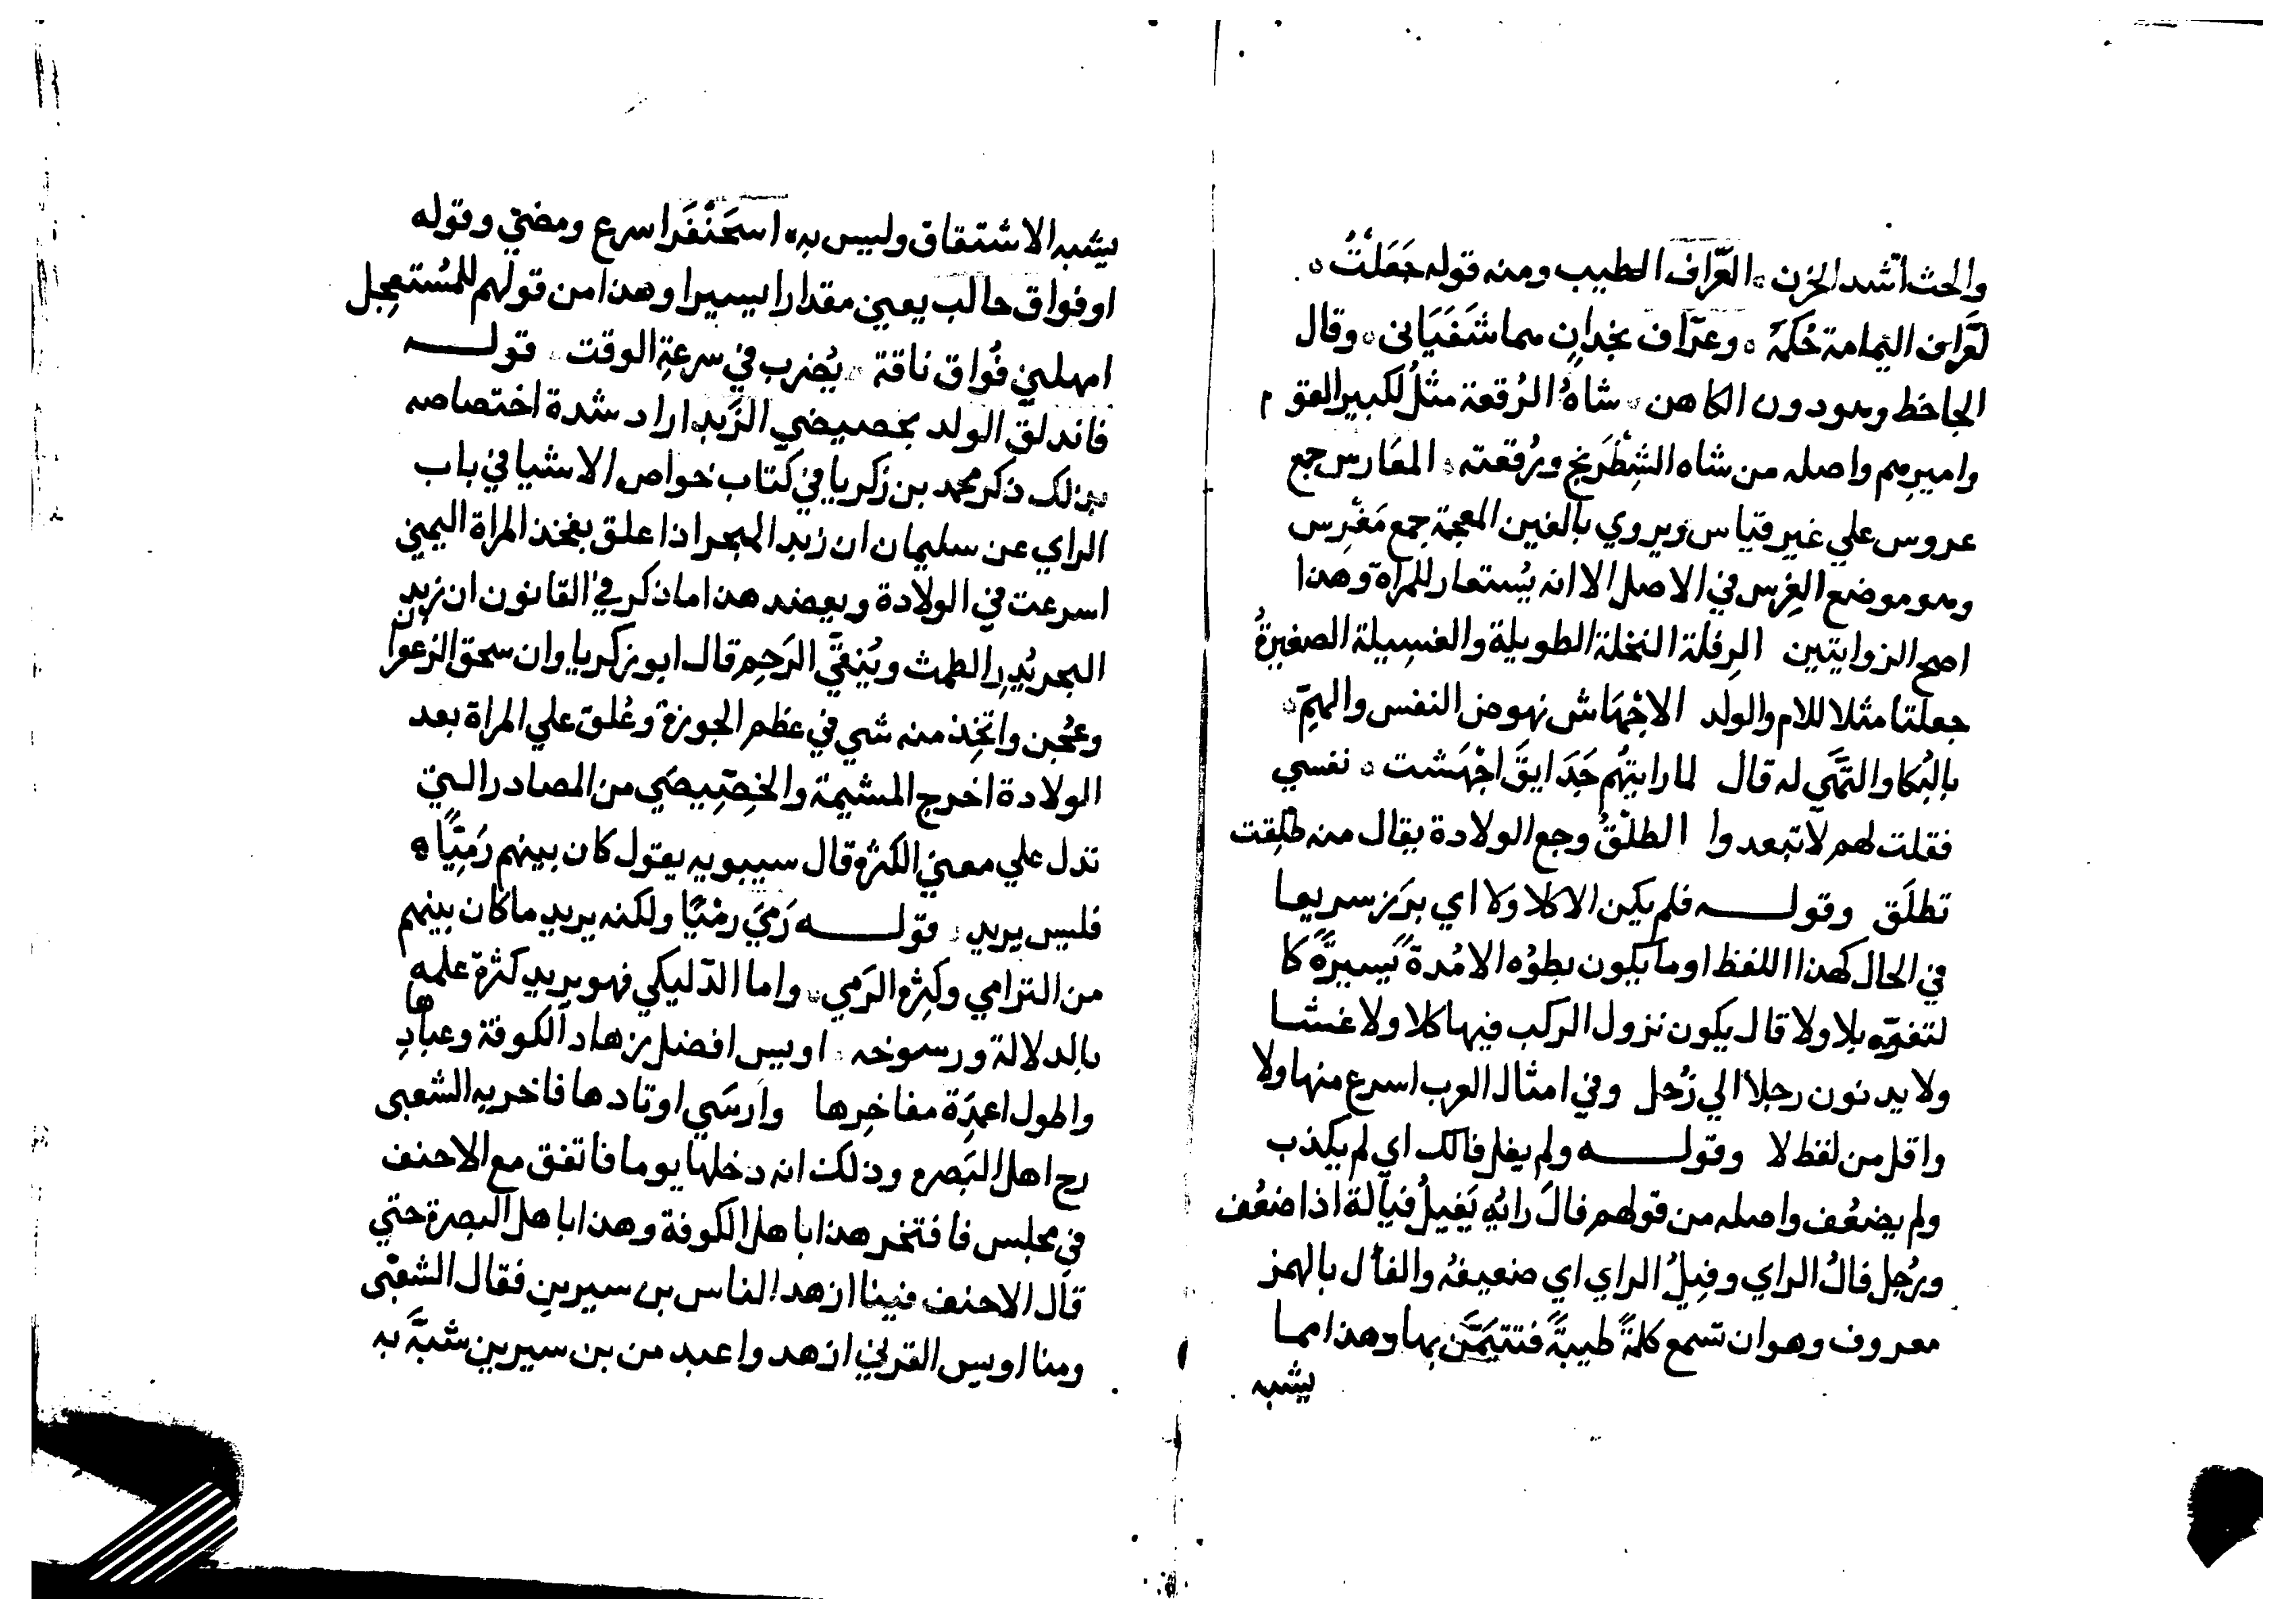 والحث اشد الحزن ۰ العَرّاف الطبيب ومنه قوله جَعَلْتُ ۰
لعَرَّاف اليمامة حُكمَهُ ۰ وعرّاف نجدانِ هما شَفَيَانى ۰ وقال
الجاحظ وهو دون الكاهن ۰ شاهُ الرُقعة مثلٌ لكبير القو م
واميرهم واصله من شاه الشِّطْرَنج ورُقعته ۰ المعَارس جمع
عروس علي غير قياس ويروي بالغين المعجمة جمع مَغْرِس
وهو موضع الغِرس في الاصل الا انه يُستعار للمراة وهذا
اصح الروايتين الرِقلة النخلة الطويلة والفسِيلة الصغيرةُ
جعلتا مثلا للام والولد الاجْهَاش نهوض النفس والهمّ ۰
بالبُكا والتهَيّ له قال لما رايتهُم حَدَايقَ اجْهَشت ۰ نفسي
فقلت لهم لا تبعدوا الطلْقُ وجع الولادة يقال منه طُلِقت
تطلَق وقولـــه فلم يكن الا كلا ولا اي برَز سريعا
في الحال كهذا اللفظ او ما يكون بطؤه الا مُدةً يَسيرةً كا
لتفوّه بلا ولا قال يكون نزول الركب فيها كلا ولا غشا
ولا يدنون رحلا الي رَحل وفي امثال العرب اسرع منها ولا
واقل من لفظ لا وقولـــه ولم يفل فالك اي لم يكذب
ولم يضعُف واصله من قولهم فالَ رايُه يَفيلُ فيَالة اذا ضعُف
ورُجل فالُ الراي وفِيلُ الراي اي ضعيفهُ والفأل بالهمز
معروف وهو ان تسمع كلمةً طيبةً فتتيَمَّن بها وهذا مما
يشبه
يشبه الاشتقاق وليس به ۰ اسحَنْفَرَ اسرع ومضيٰ وقوله
او فواق حالب يعني مقدارا يسيرا وهذا من قولهم للمُستعجِل
امهلني فُواق ناقة ۰ يُضرب في سرعةِ الوقت ۰ قولـــه
فاندلق الولد بخصيصي الزَبد اراد شدة اختصاصه
بذلك ذكر محمد بن زكريا في كتاب خواص الاشيا في باب
الراي عن سليمان ان زبد البحر اذا علق بفخذ المراة اليمني
اسرعت في الولادة ويعضد هذا ما ذكر في القانون ان زبد
البحر يُدِر الطمث ويُنقَّي الرَحِم قال ابو زكريا وان سحق الزعفران
وعُجن واتُّخِذ منه شي في عظم الجوزة وعُلق علي المراة بعد
الولادة اخرج المشيمة والخِصِّيصَي من المصادر التي
تدل علي معني الكثرة قال سيبويه يقول كان بينهم رَمِيًّا ه
فليس يريد ۰ قولـــه رَمَيَ رمْيًا ولكنه يريد ما كان بينهم
من الترامي وكثرة الرَمي ۰ واما الدّليلي فهو يريد كثرة علمه
بالدلالة ورسوخه ۰ اويس افضل زهاد الكوفة وعبادها
واطول اعمدَة مفاخِرها وارسَي اوتادها فاخر به الشعبى
رح اهل البَصرة وذلك انه دخلها يوما فاتفق مع الاحنف
في مجلس فافتخر هذا باهل الكوفة وهذا باهل البصرة حتي
قال الاحنف فينا ازهد الناس بن سيرين فقال الشعبّى
ومنا اويس القرني ازهد واعبد من بن سيرين شبَّهَ به